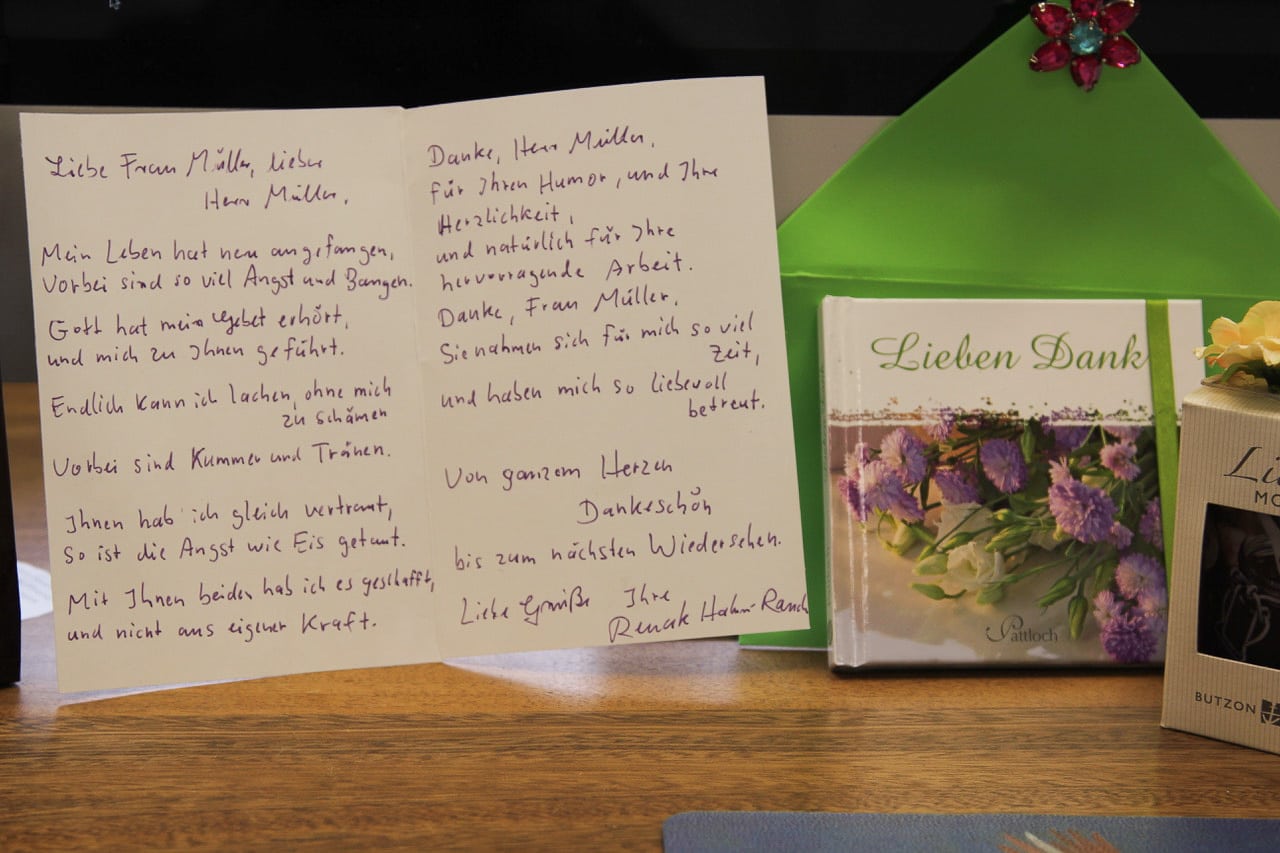 Liebe Frau Müller, lieber
Herr Müller,
Mein Leben hat neu angefangen,
Vorbei sind so viel Angst und Bangen.
Gott hat mein Gebet erhört,
und mich zu Ihnen geführt.
Endlich kann ich lachen, ohne mich
zu schämen
Vorbei sind Kummer und Tränen.
Ihnen hab' ich gleich vertraut,
So ist die Angst wie Eis getaut.
Mit Ihnen beiden hab ich es geschafft,
und nicht aus eigener Kraft.
Danke, Herr Müller,
für Ihren Humor, und Ihre
Herzlichkeit,
und natürlich für Ihre
hervorragende Arbeit.
Danke, Frau Müller,
Sie nahmen sich für mich so viel
Zeit,
und haben mich so liebevoll
betreut.
Von ganzem Herzen
Dankeschön
bis zum nächsten Wiedersehen.
Liebe Grüße Ihre
Renate
Lieben Dank
Pattloch
BUTZON